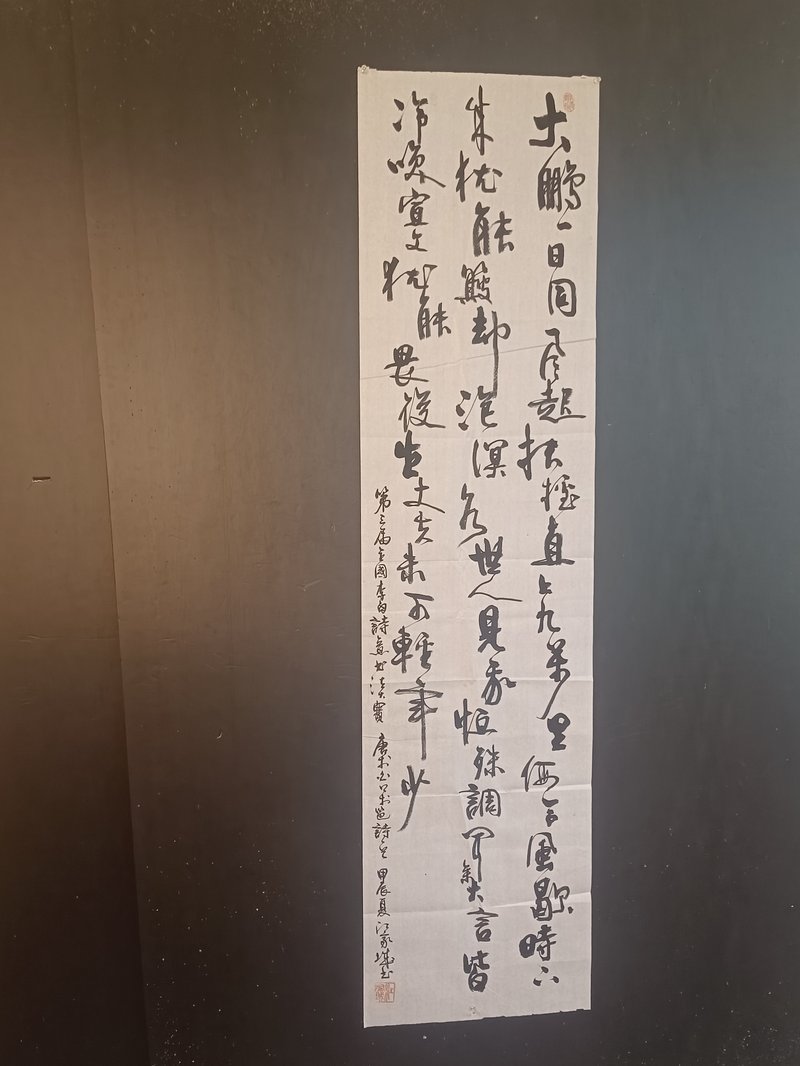 大鵬一日同風起扶搖直上九萬里假令風歇時下
來猶能簸却滄溟水世人見我恒殊調聞余大言皆
冷咲宣父猶能畏後生丈夫未可輕年少
第三届全國李白詩意书法大賽 唐李白上李邕詩 甲辰夏江家城书